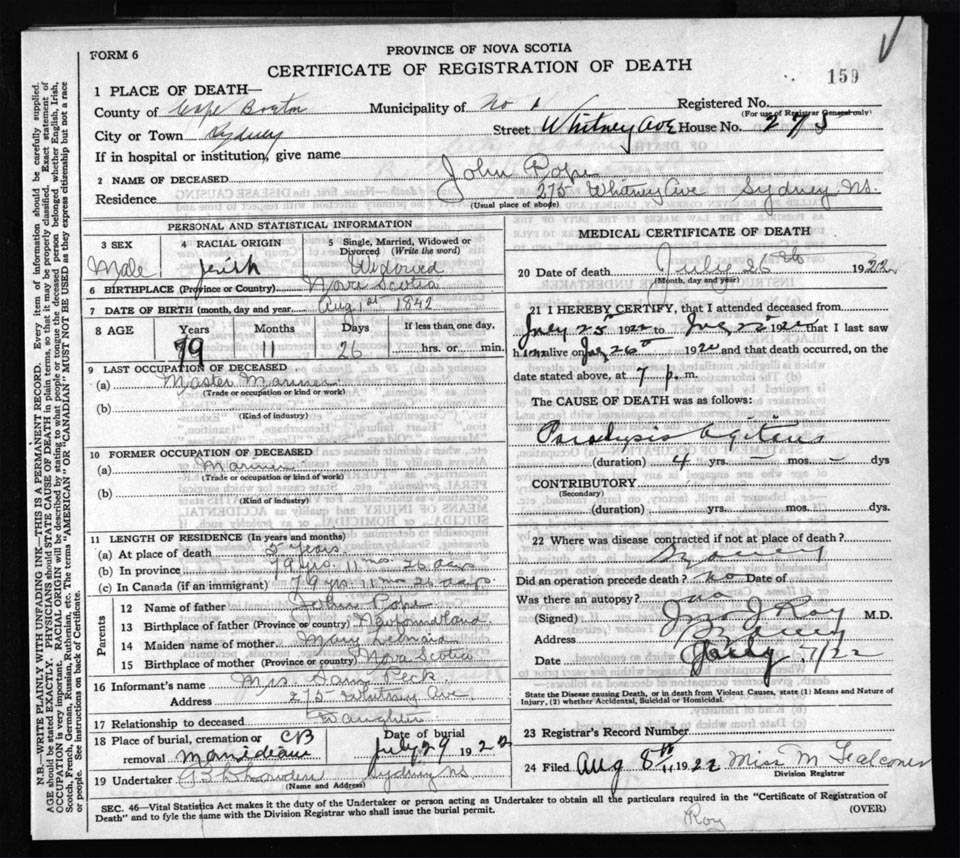 FORM 6
PROVINCE OF NOVA SCOTIA
CERTIFICATE OF REGISTRATION OF DEATH
159
1 PLACE OF DEATH—
County of Cape Breton Municipality of No 1 Registered No.
(For use of Registrar General only)
City or Town Sydney Street Whitney Ave House No. 275
If in hospital or institution, give name
2 NAME OF DECEASED John Pope
Residence 275 Whitney Ave Sydney NS.
(Usual place of abode)
PERSONAL AND STATISTICAL INFORMATION
3 SEX Male
4 RACIAL ORIGIN
5 Single, Married, Widowed or Divorced (Write the word) Widowed
6 BIRTHPLACE (Province or Country) Nova Scotia
7 DATE OF BIRTH (month, day and year) Aug 1st 1842
8 AGE Years Months Days If less than one day,
79 11 26 hrs. or min.
9 LAST OCCUPATION OF DECEASED
(a) Master Mariner
(Trade or occupation or kind or work)
(b)
(Kind of industry)
10 FORMER OCCUPATION OF DECEASED
(a) Mariner
(Trade or occupation or kind of work)
(b)
(Kind of industry)
11 LENGTH OF RESIDENCE (In years and months)
(a) At place of death 5 years
(b) In province 79 yrs. 11 mos. 26 days
(c) In Canada (if an immigrant) 79 yrs. 11 mo 26 days
Parents
12 Name of father John Pope
13 Birthplace of father (Province or country) Newfoundland
14 Maiden name of mother Mary Leonard
15 Birthplace of mother (Province or country) Nova Scotia
16 Informant's name Mrs. Peck
Address 275 Whitney Ave
17 Relationship to deceased Daughter
18 Place of burial, cremation or removal CB
Date of burial July 29 1922
19 Undertaker Sydney NS
(Name and Address)
MEDICAL CERTIFICATE OF DEATH
20 Date of death July 26th 1922
(Month, day and year)
21 I HEREBY CERTIFY, that I attended deceased from
July 25th 1922 to 1922 that I last saw
him alive on 26th 1922 and that death occurred, on the
date stated above, at 7 p. m.
The CAUSE OF DEATH was as follows:
Paralysis Agitans
(duration) 4 yrs. mos. – dys
CONTRIBUTORY
(Secondary)
(duration) yrs. mos. dys.
22 Where was disease contracted if not at place of death?
Sydney
Did an operation precede death? no Date of
Was there an autopsy? no
(Signed) J Roy M.D.
Address Sydney
Date /22
State the Disease causing Death, or in death from Violent Causes, state (1) Means and Nature of
Injury, (2) whether Accidental, Suicidal or Homicidal.
23 Registrar's Record Number
24 Filed Aug 8th 1922 Miss M Falconer
Division Registrar
SEC. 46—Vital Statistics Act makes it the duty of the Undertaker or person acting as Undertaker to obtain all the particulars required in the "Certificate of Registration of
Death" and to fyle the same with the Division Registrar who shall issue the burial permit. (OVER)
Roy
N.B.—WRITE PLAINLY WITH UNFADING INK—THIS IS A PERMANENT RECORD. Every item of information should be carefully supplied.
AGE should be stated EXACTLY. PHYSICIANS should STATE CAUSE OF DEATH in plain terms, so that it may be properly classified. Exact statement of
OCCUPATION is very important. RACIAL ORIGIN will be described by stating to what people or tongue the deceased person belonged whether English, Irish,
Scotch, French, German, Russian, Ruthenian, etc. The terms "AMERICAN" OR "CANADIAN" MUST NOT BE USED as they express citizenship but not a race
or people. See instructions on back of Certificate.